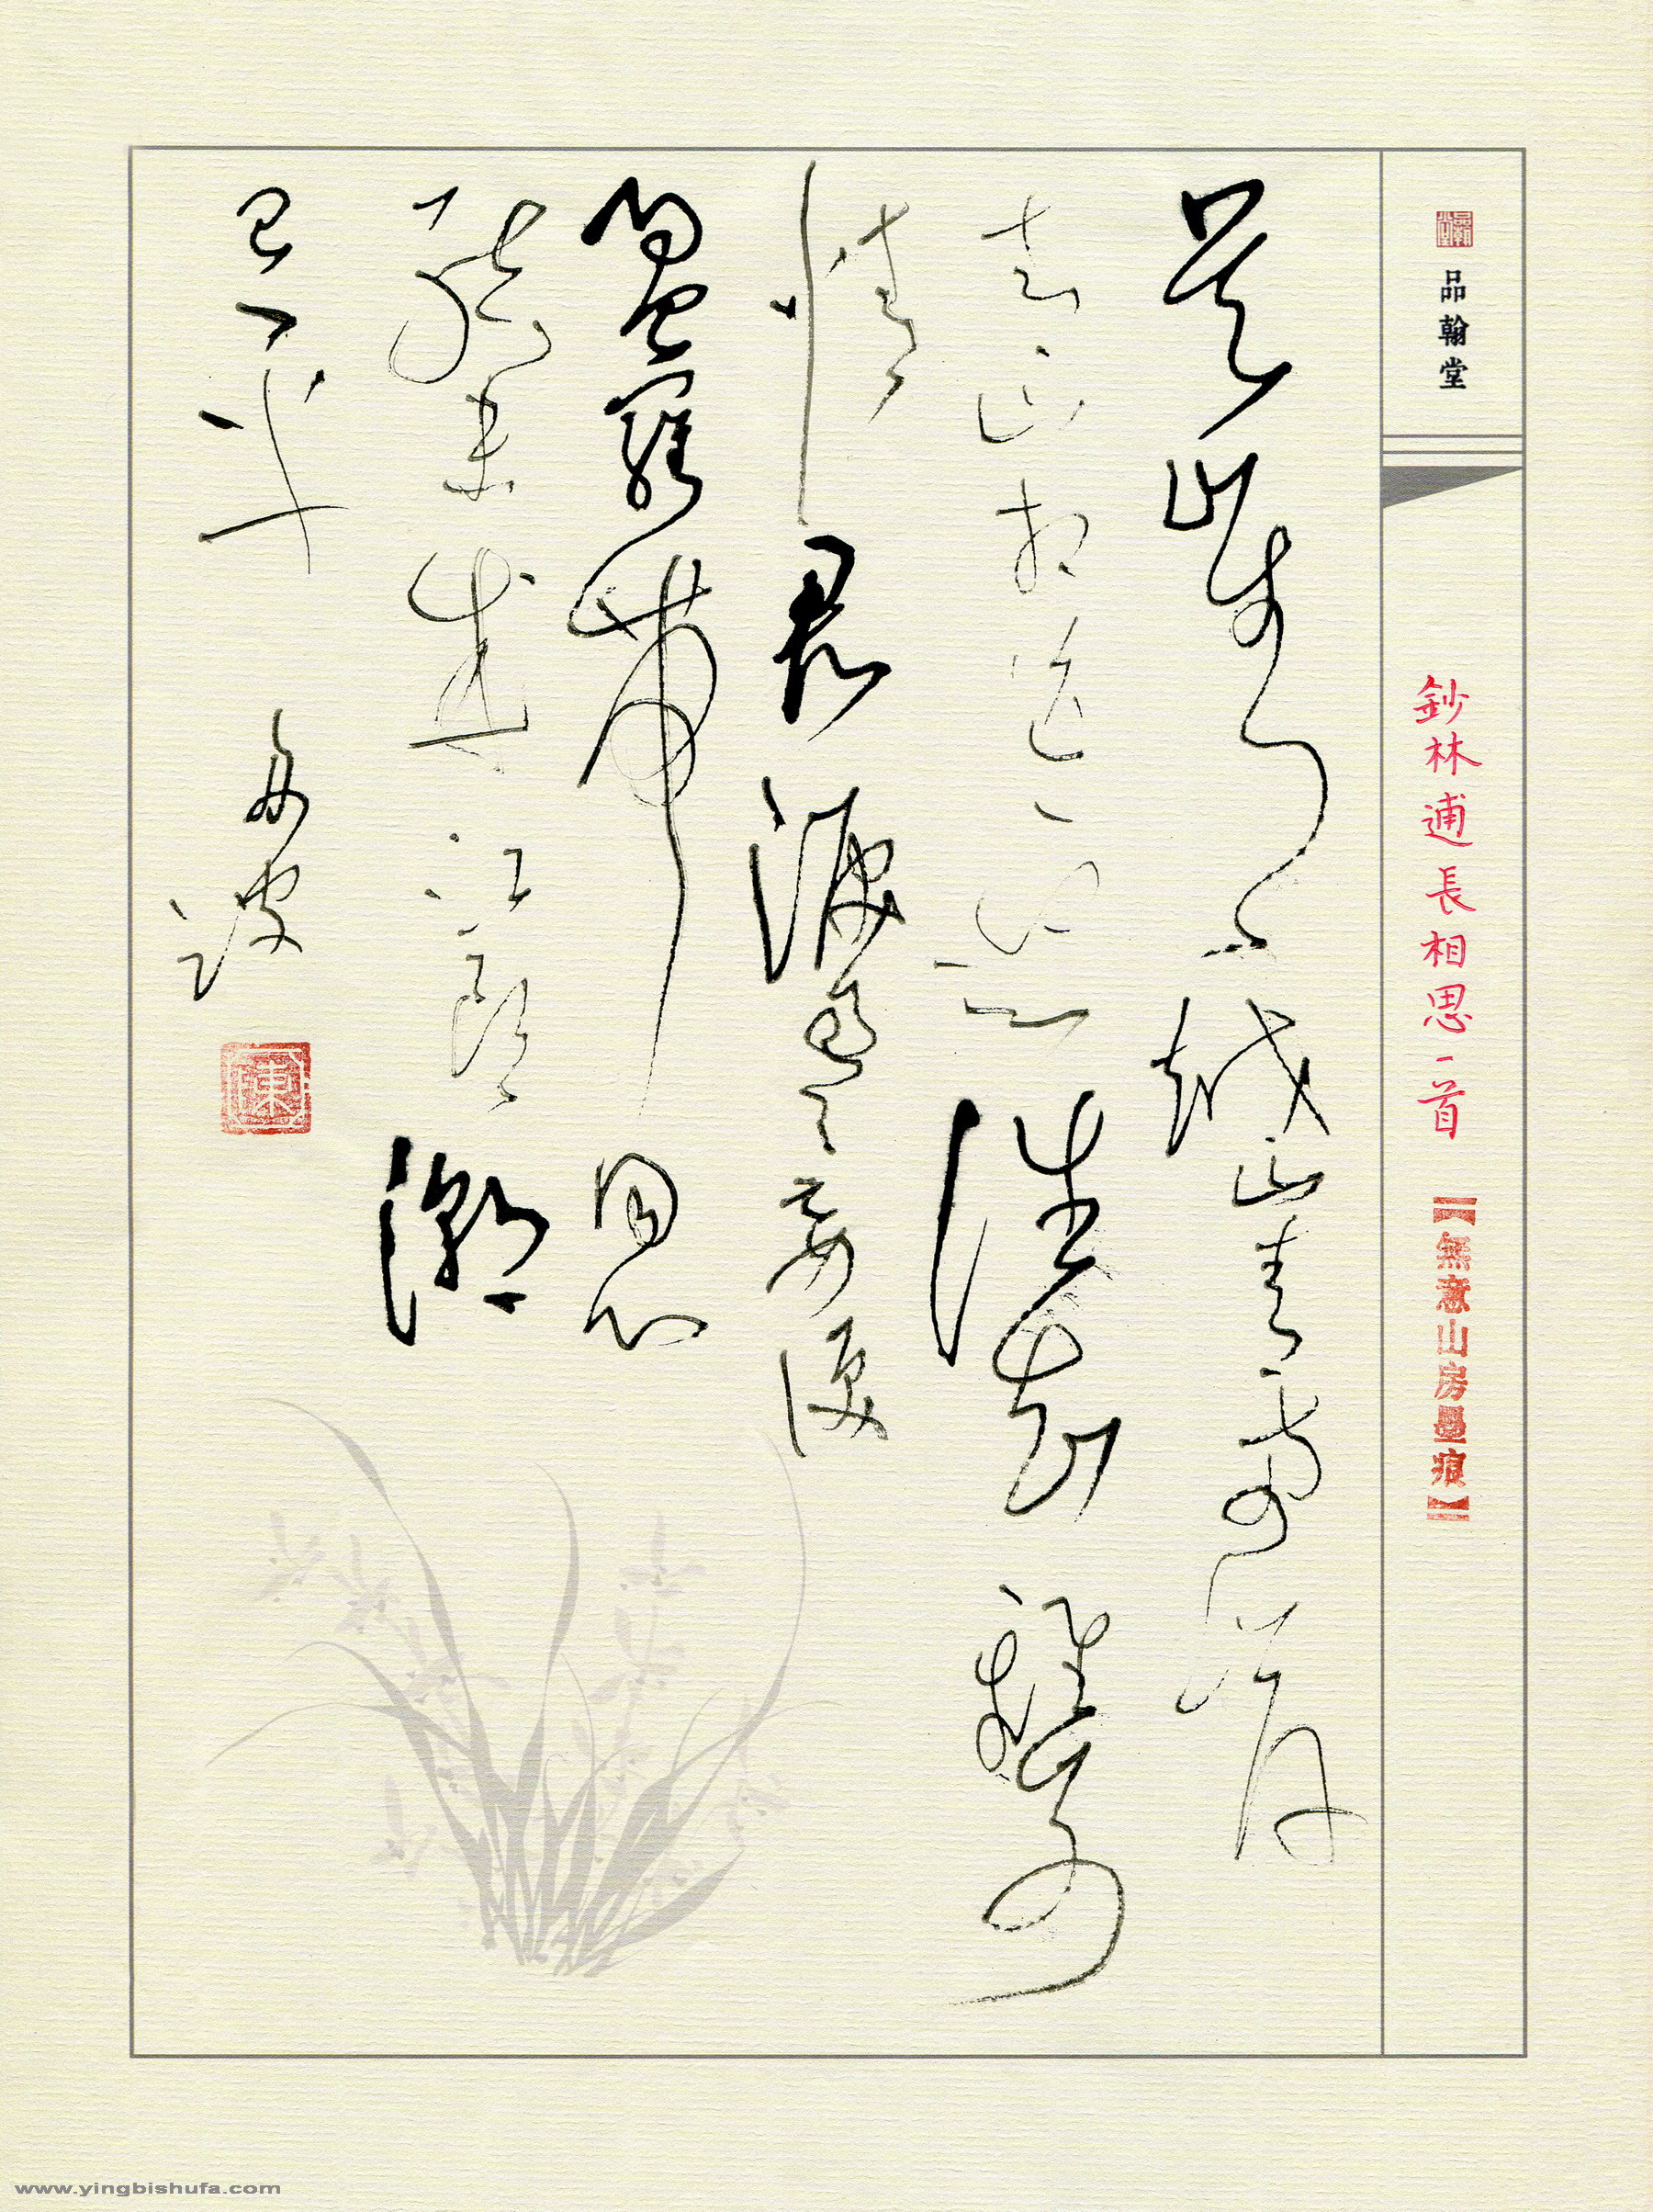 品翰堂
鈔林逋長相思一首
【無意山房墨痕】
吳山青越山青兩岸
青山相送迎誰知離別
情君淚盈妾淚
盈羅帶同心
結未成江頭潮
已平
陳
www.yingbishufa.com